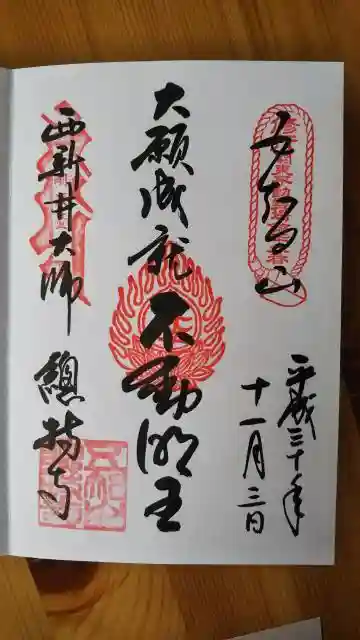 五智山
平成三十年
十一月三日
大願成就 不動明王
西新井大師
總持寺